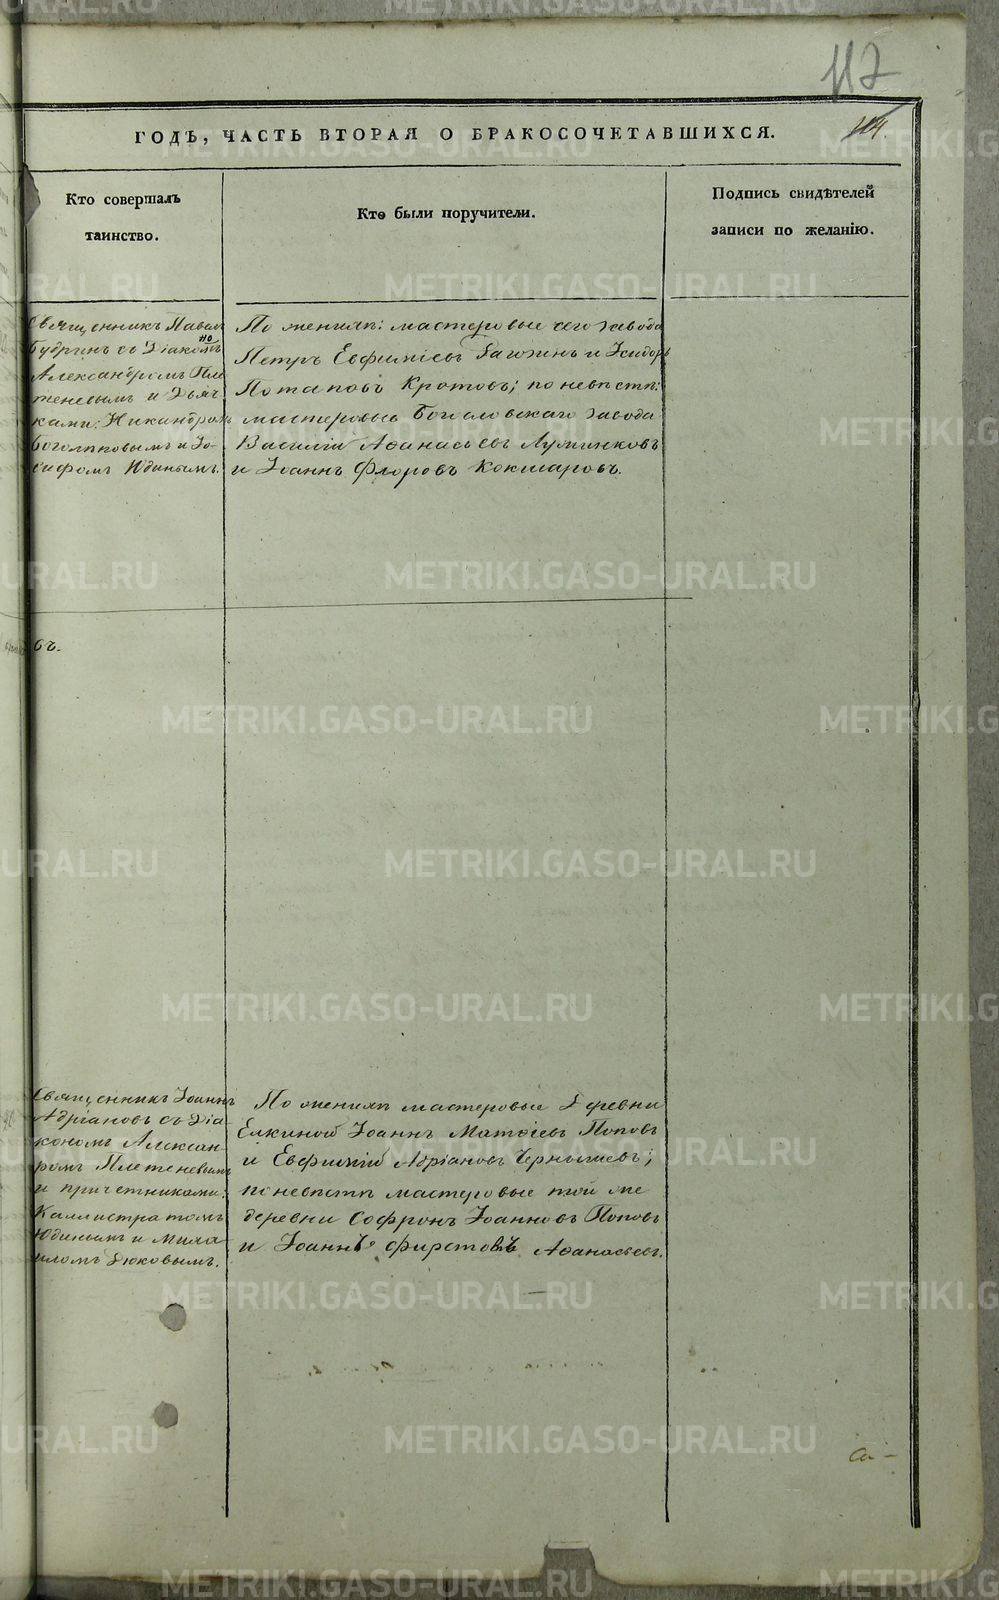 117
114.
ГОДЪ, ЧАСТЬ ВТОРАЯ О БРАКОСОЧЕТАВШИХСЯ.
Кто совершалъ
таинство.
Кто были поручители.
Подпись свидѣтелей
записи по желанію.
Священникъ Павелъ
Будринъ съ Діакономъ
Александромъ Пле
теневымъ и Дьяч
ками: Никандромъ
Боголѣповымъ и Іо-
сифомъ Юдинымъ.
По женихѣ: мастеровые сего завода
Петръ Евфиміевъ и Исидоръ
Потаповъ Кротовъ; по невѣстѣ:
мастеровые Богословскаго завода
Василій Аѳанасьевъ
и Іоаннъ Флоровъ Кокшаровъ.
Священникъ Іоаннъ
Адріановъ съ Діа-
кономъ Алексан
ромъ Плетеневымъ
и причетниками:
Каллистратомъ
Юдинымъ и Миха
иломъ Дюковымъ.
По женихѣ мастеровые деревни
Елкиной Іоаннъ Матѳіевъ Поповъ
и Евфимій Адріановъ Чернышевъ;
по невѣстѣ мастеровые той же
деревни Софронъ Іоанновъ Поповъ
и Іоаннъ Фирстовъ Аѳанасьевъ.
METRIKI.GASO-URAL.RU